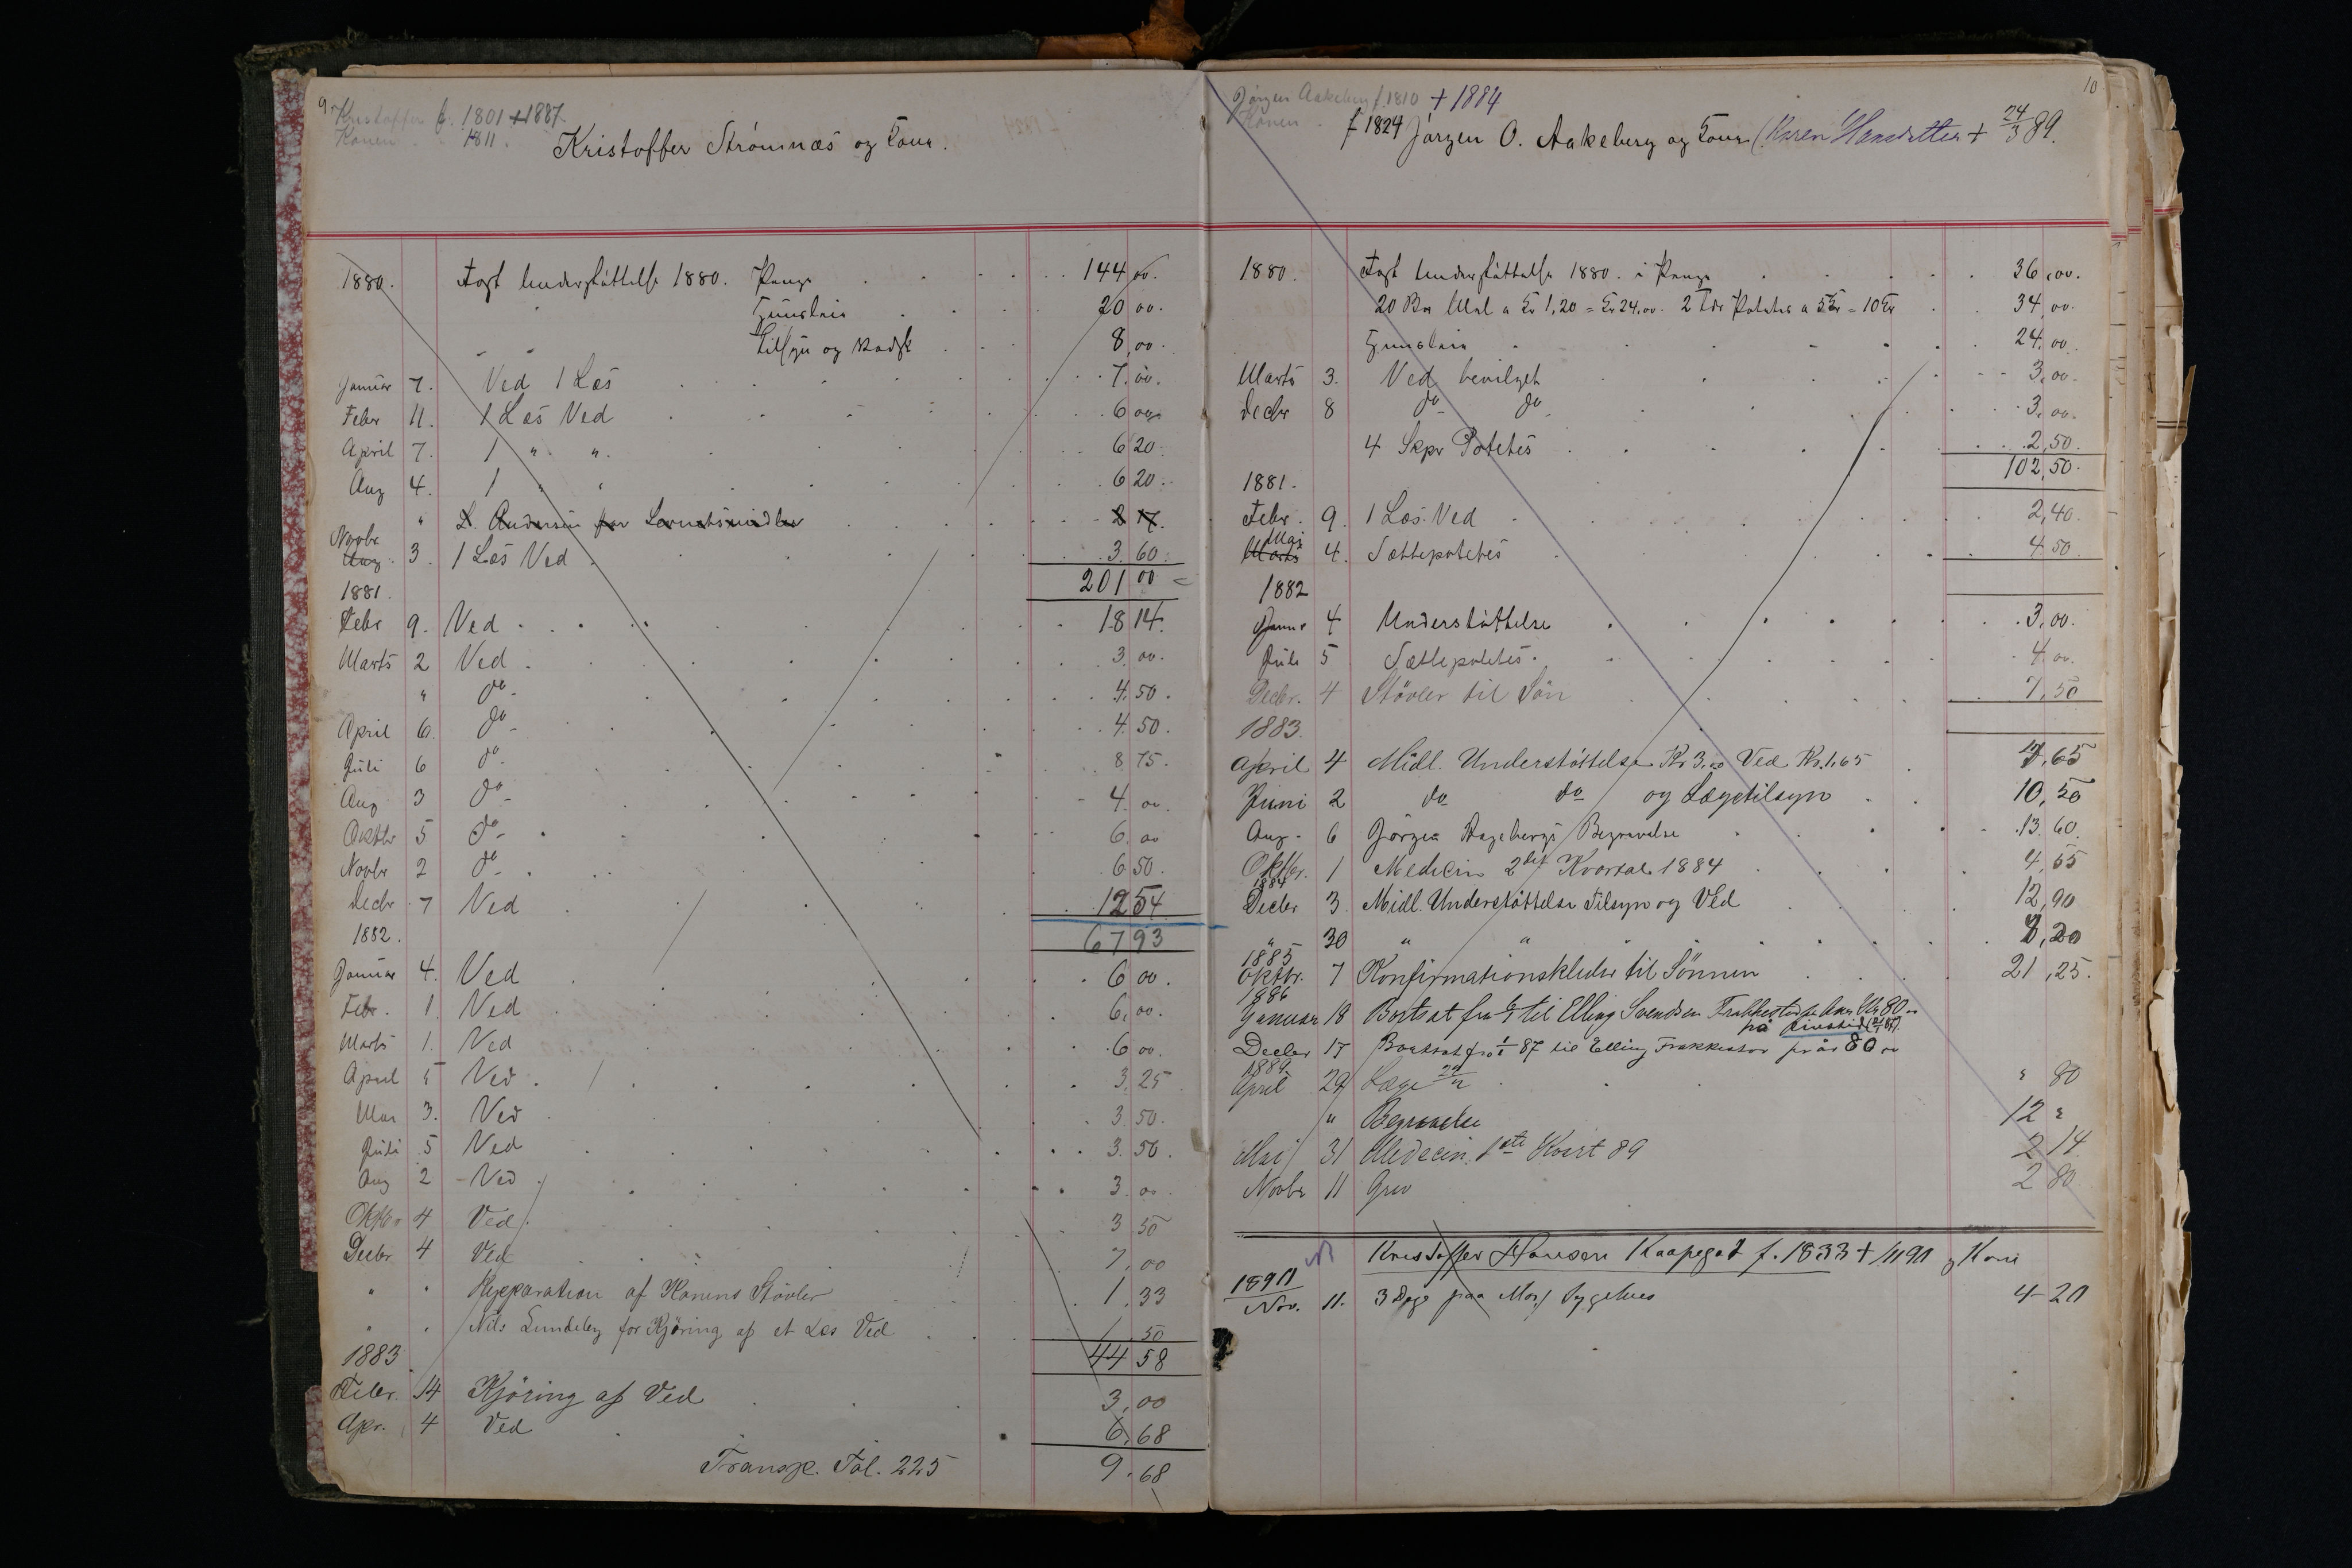 9.
Kristoffer f. 1801 + 1887
Konen " 1811.
Kristoffer Strömnæs og Kone.
1880. Fast Understøttelse 1880. Penge 144 00.
" Huusleie 20 00.
" " Tilsyn og 8,00.
Januar 7. Ved 1 Læs 7.00.
Febr 11. 1 Læs Ved 6 00
April 7. 1 " " 6 20.
Aug 4. 1 " " 6 20.
" L. Andersen for 2 17.
Novbr Aug 3. 1 Læs Ved 3 60.
201 00
1881.
Febr 9. Ved 18 14.
Marts 2 Ved 3.00.
" do 4.50.
April 6. do 4.50.
Juli 6 do 8 75.
Aug 3 do 4.00.
Oktbr 5 do 6.00
Novbr 2 do 6 50.
Decbr 7 Ved 12 54
67 93
1882.
Januar 4. Ved 6 00.
Febr. 1. Ved 6,00.
Marts 1. Ved 6 00.
April 5 Ved 3,25
Mai 3. Ved 3 50.
Juli 5 Ved 3.50.
Aug 2 Ved 3.00.
Oktbr 4 Ved 3 50
Decbr 4 Ved 7,00
" " Repparation af Konens Støvler 1.33
" " Nils Lundeby for Kjøring af et Læs Ved 1.50
44 58
1883
Febr. 14 Kjöring af Ved 3,00
Apr. 4 Ved 6,68
Transp. Fol. 225 9.68
10
Jörgen Aakeberg f. 1810 + 1884
Konen
f 1824 Jörgen O. Aakeberg og Kone (Karen Hansdatter + 24/3 89.
1880. Fast Understøttelse 1880. i Penge 36,00.
20 Bp Mel a Kr 1,20 = Kr 24,00. 2 Tdr Poteter a 5 Kr = 10 Kr 34,00.
Huusleie 24,00.
Marts 3. Ved bevilget 3,00.
Decbr 8 do do 3,00.
4 Skpr Potetes 2,50.
102,50.
1881.
Febr. 9. 1 Læs Ved 2,40.
Marts Maj 4. Sættepotetes 4 50.
1882
Januar 4 Understøttelse 3,00.
Juli 5 Sættepotetes. 4 00.
Decbr. 4 Støvler til Søn 7,50
1883.
April 4 Midl. Understøttelse Kr 3,00 Ved Kr. 1,65 4,65
Juni 2 do do og Lægetilsyn 10,50
Aug. 6 Jörgen Aagebergs Begravelse 13.60.
Oktbr. 1 Medicin 2det Kvartal 1884 4,55
1884
Decbr 3 Midl. Understøttelse Tilsyn og Ved 12,90
" 30 " " 8,20
1885
Oktbr. 7 Konfirmationsklæder til Sönnen 21,25.
1886
Januar 18 Bortsat fra til Elling Svendsen Trakkestad 80
på Livstid
Decbr 17 Bortsat fra 1/1 87 til Elling Trakkestad pr år 80 00
1889.
April 29 Læge " 80
" Begravelse 12 "
Mai 31 Medecin 1ste Kvart 89 2 14
Novbr 11 Grav 2 80
Kristoffer Hansen Kaapegat f. 1833 + og Kone
1890
Nov. 11. 3 Døgn paa Sygehus 4-20